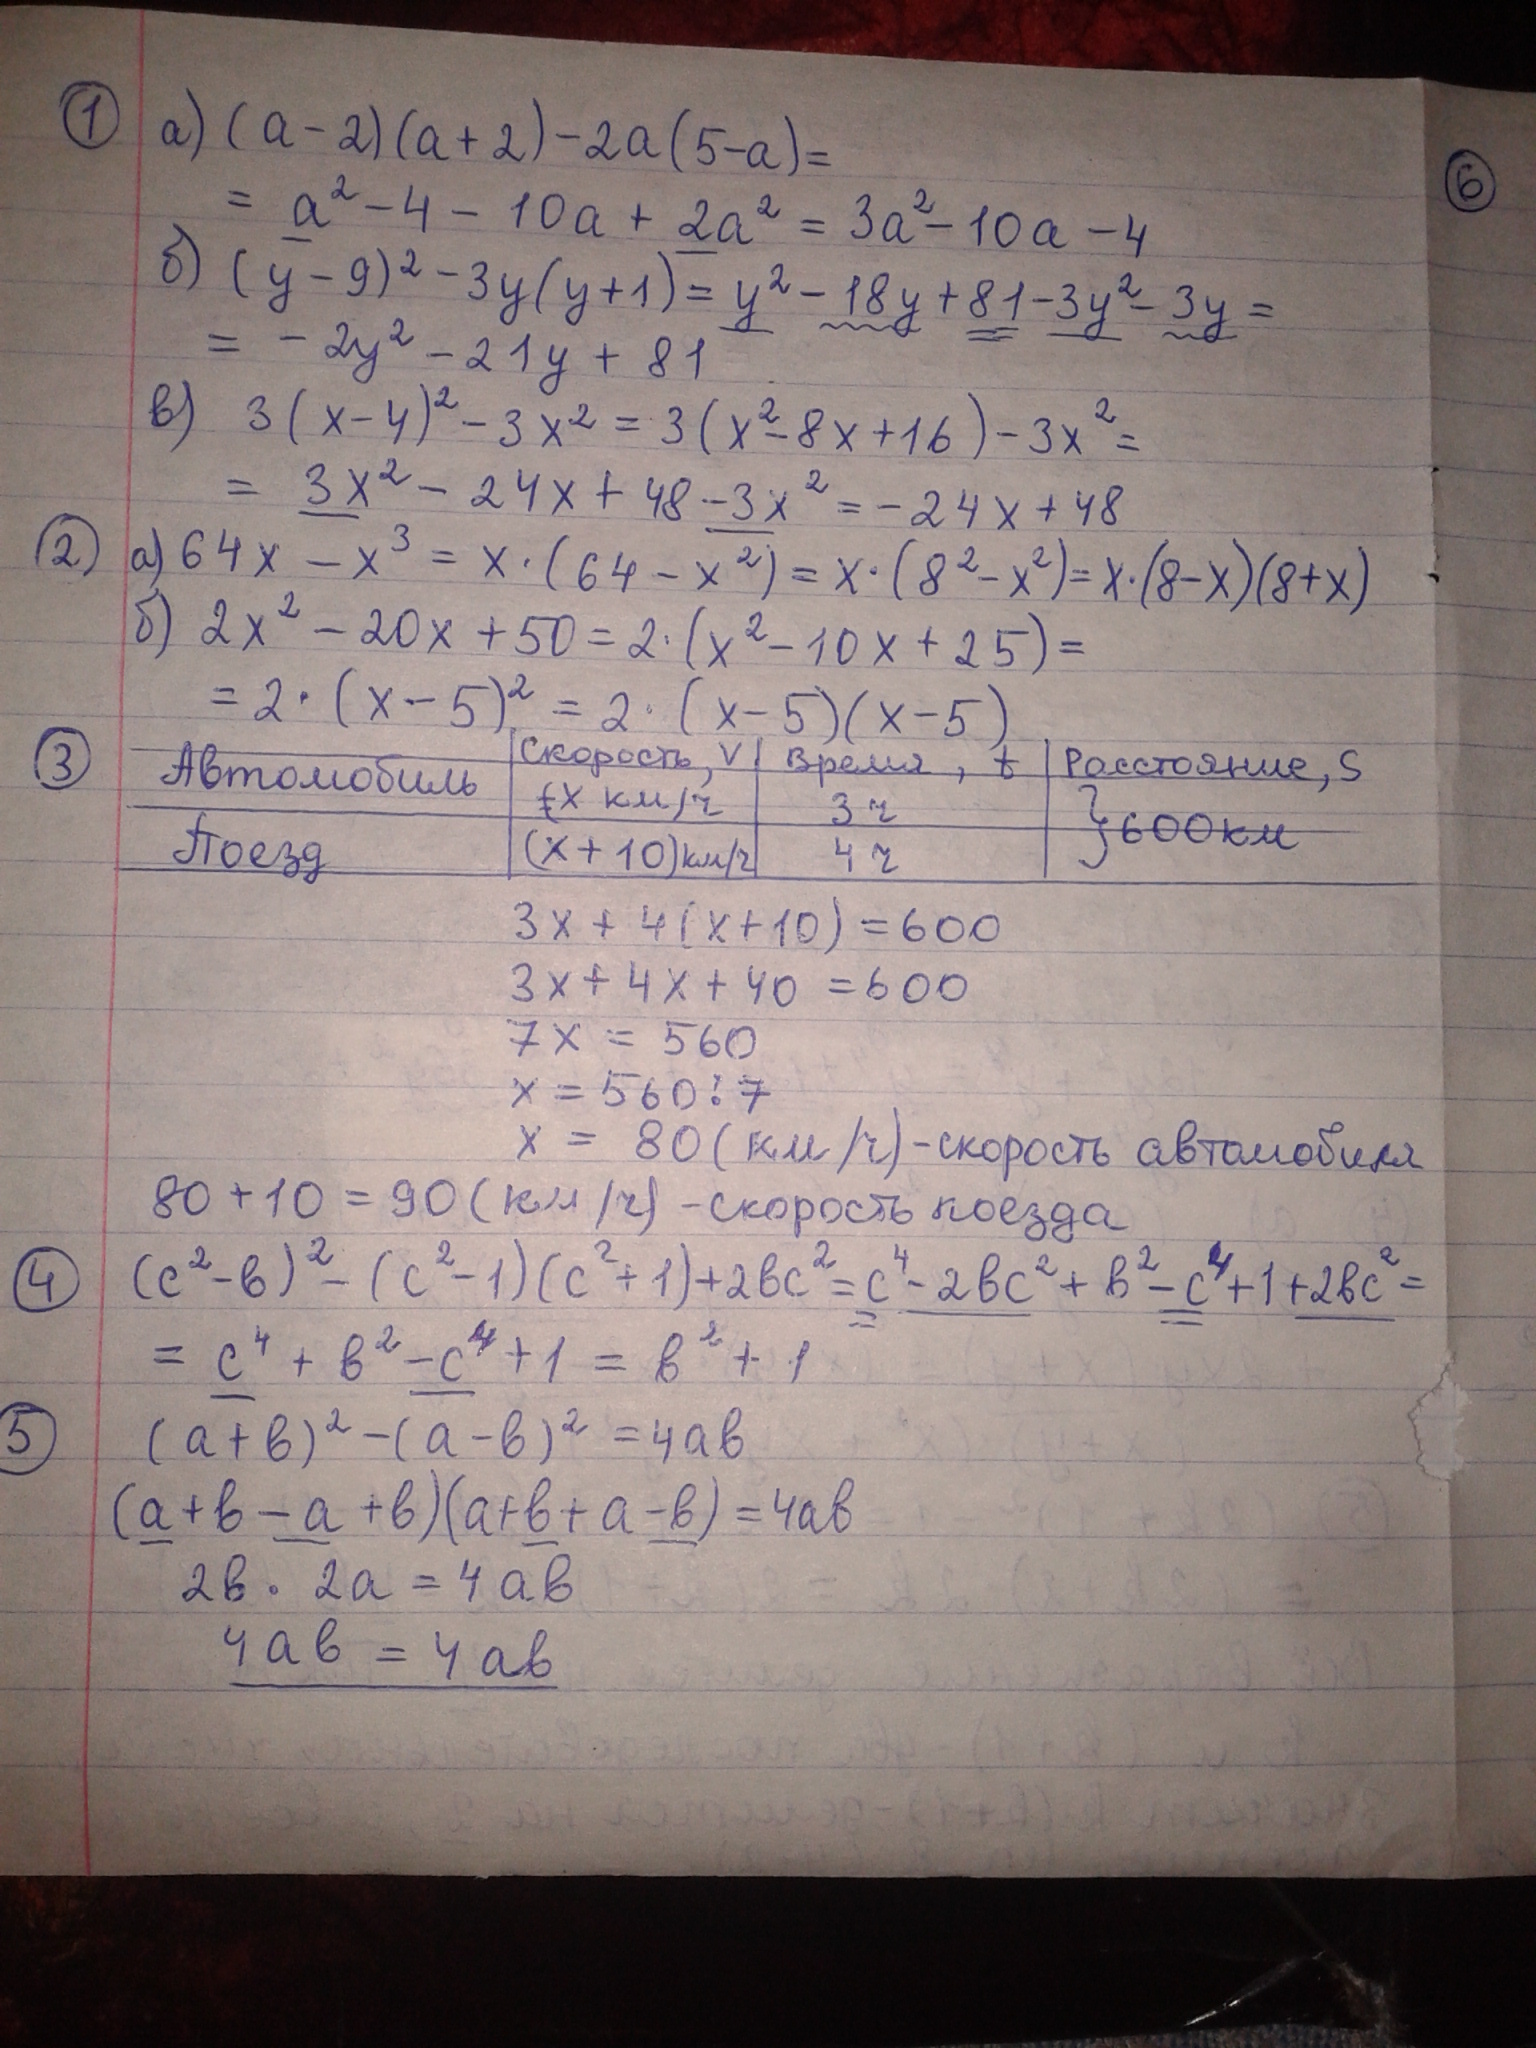 ① а) (a-2)(a+2)-2a(5-a)=
= a²-4-10a+2a² = 3a²-10a-4
б) (y-9)²-3y(y+1)=y²-18y+81-3y²-3y=
= -2y²-21y+81
в) 3(x-4)²-3x²=3(x²-8x+16)-3x²=
= 3x²-24x+48-3x²=-24x+48
② а) 64x-x³=x·(64-x²)=x·(8²-x²)=x·(8-x)(8+x)
б) 2x²-20x+50=2·(x²-10x+25)=
=2·(x-5)²=2·(x-5)(x-5)
③ Скорость, V Время, t Расстояние, S
Автомобиль x км/ч 3 ч } 600 км
Поезд (x+10)км/ч 4 ч
3x+4(x+10)=600
3x+4x+40=600
7x=560
x=560:7
x = 80 (км/ч)-скорость автомобиля
80+10=90(км/ч)-скорость поезда
④ (c²-в)²-(c²-1)(c²+1)+2вc²=c⁴-2вc²+в²-c⁴+1+2вc²=
= c⁴+в²-c⁴+1=в²+1
⑤ (a+в)²-(a-в)²=4aв
(a+в-a+в)(a+в+a-в)=4aв
2в·2a=4aв
4aв=4aв
⑥